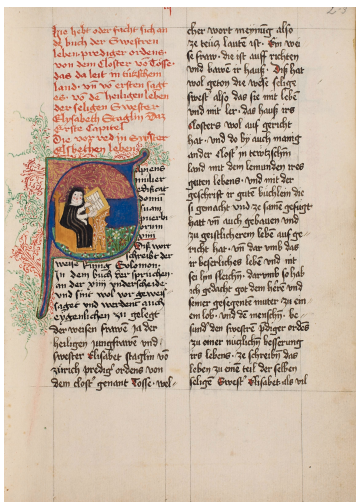 Hie hebt oder facht sich an
dz buch der Swestren
leben prediger ordens
von dem Closter vō Tosse
das da leit in türkschem
land · vn̄ vō ersten sagt
es vō dē heiligen leben
der seligen Swester
Elysabeth Staglin Daz
Erste Capitel
Die vor red in Swester
Elsbethen leben
Sapiens
mulier
edificat
domū
suam
prouerbi
orum
xiiii
Diß wort
schreibt der
weise küng Solomon
In dem buch der sprüchen
an der xiiii vnderscheide
vnd sint wol vor gewis
saget vnd werdent auch
eygenlichen zu gelegt
der weisen frawē ja der
heiligen jungfrawē vnd
swester Elisabet staglin vō
zürich predig ordens von
dem clost genant Tosse · wel
cher wort meinung also
ze teuͤtz lautet ist · Ein wei
se fraw die ist auff richten
vnd bawē ir hauß · Diß hat
wol geton die weise selige
swest also das sie mit lebē
vnd mit ler · das hauß irs
Closters wol auf gericht
hat · vnd do by auch manig
ander Clost in tewtzschē
land mit dem lemunden ires
guten lebens · vnd mit der
geschrift ir gute büchlein die
si gemacht vnd ze samē gefügt
hatt vn̄ auch gebauen vnd
zu geistlicherem lebē auf ge
richt hat · vn̄ dar vmb das
ir besserliches lebē vnd mit
sei lyn sleichn · darumb so hab
ich gedacht got dem herē vnd
seiner gesegente muter zu ein
em lob · vnd dē menschn̄ · be
sund dēn swestrē pdiger ordēs
zu einer nuczlichn̄ besserung
irs lebens · ze schreibn̄ das
leben zu eine teil der selben
seligē Swest Elisabet als vil